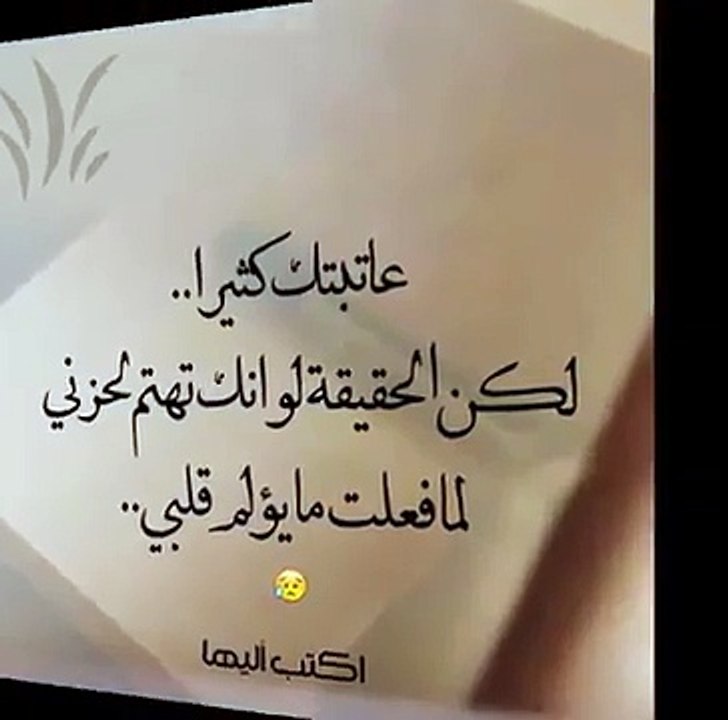 عاتبتك كثيرا..
لكن الحقيقة لو انك تهتم لحزني
لما فعلت ما يؤلم قلبي..
😥
اكتب اليها